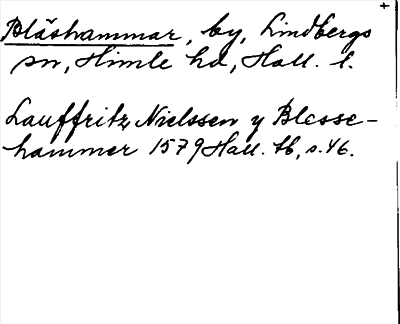 +
Blåshammar, by, Lindbergs
sn, Himle hd, Hall. l.
Lauffritz Nielssen y Blesse-
hammer 1579 Hall. tb, s. 46.